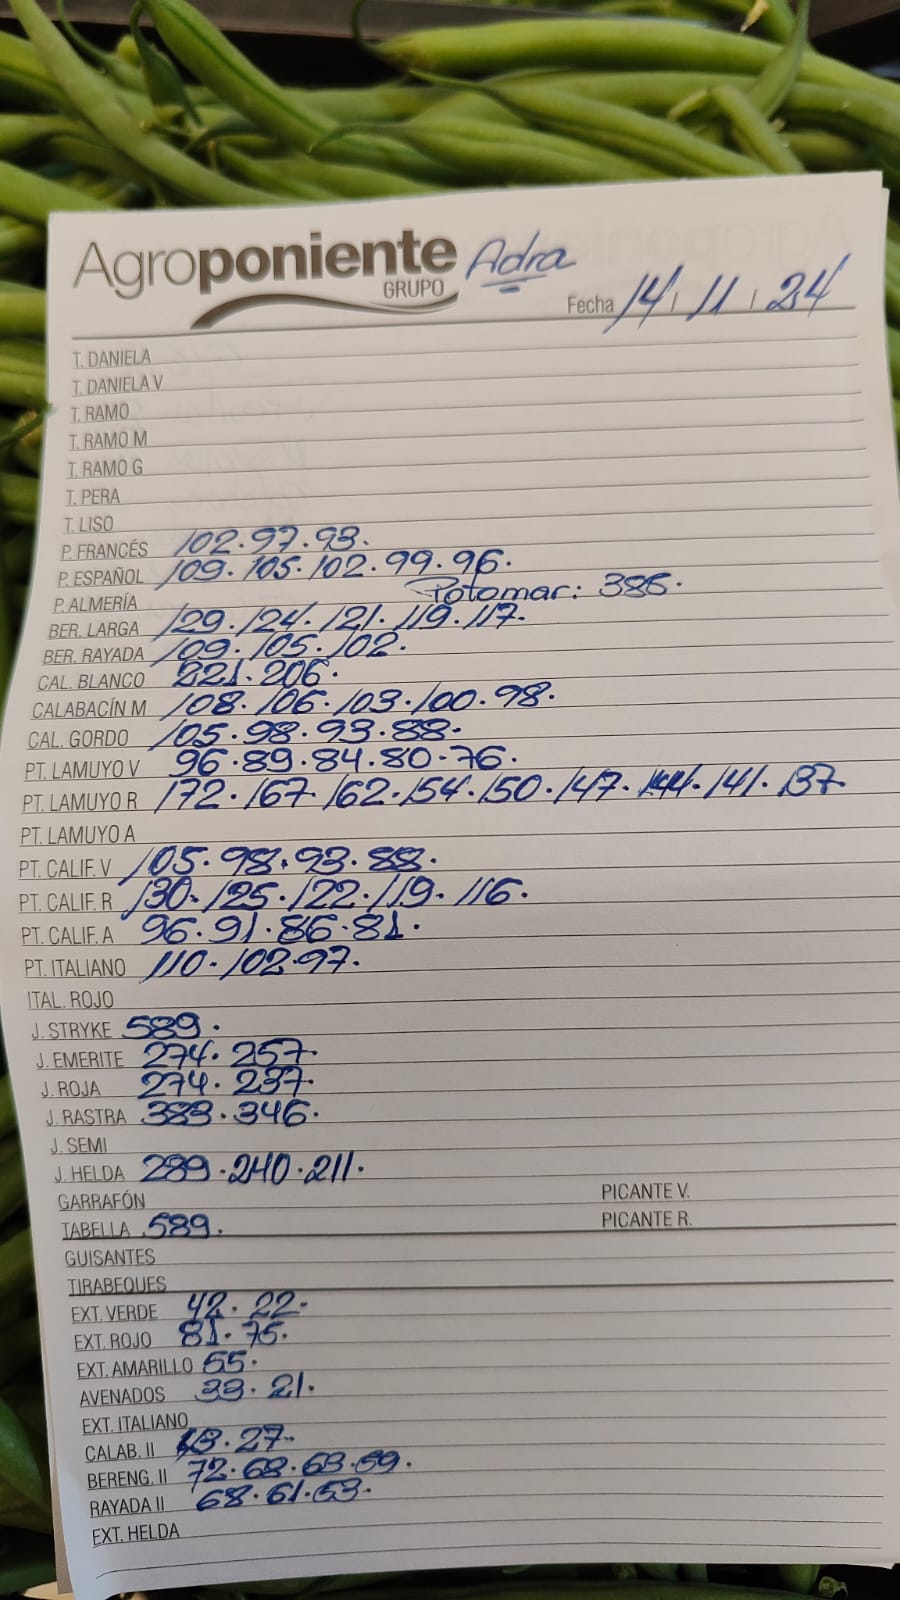 Agroponiente Adra
GRUPO
Fecha 14 / 11 / 24
T. DANIELA
T. DANIELA V
T. RAMO
T. RAMO M
T. RAMO G
T. PERA
T. LISO
P. FRANCÉS 102. 97. 93.
P. ESPAÑOL 109. 105. 102. 99. 96.
P. ALMERÍA Potomar: 385.
BER. LARGA 129. 124. 121. 119. 117.
BER. RAYADA 109. 105. 102.
CAL. BLANCO 221. 206.
CALABACÍN M 108. 106. 103. 100. 98.
CAL. GORDO 105. 98. 93. 88.
PT. LAMUYO V 96. 89. 84. 80. 76.
PT. LAMUYO R 172. 167. 162. 154. 150. 147. 144. 141. 137.
PT. LAMUYO A
PT. CALIF. V 105. 98. 93. 88.
PT. CALIF. R 130. 125. 122. 119. 116.
PT. CALIF. A 96. 91. 86. 81.
PT. ITALIANO 110. 102. 97.
ITAL. ROJO
J. STRYKE 589.
J. EMERITE 274. 257.
J. ROJA 274. 237.
J. RASTRA 383. 346.
J. SEMI
J. HELDA 289. 240. 211.
GARRAFÓN PICANTE V.
TABELLA 589. PICANTE R.
GUISANTES
TIRABEQUES
EXT. VERDE 42. 22.
EXT. ROJO 81. 75.
EXT. AMARILLO 55.
AVENADOS 33. 21.
EXT. ITALIANO
CALAB. II 27.
BERENG. II 72. 68. 63. 59.
RAYADA II 68. 61. 53.
EXT. HELDA